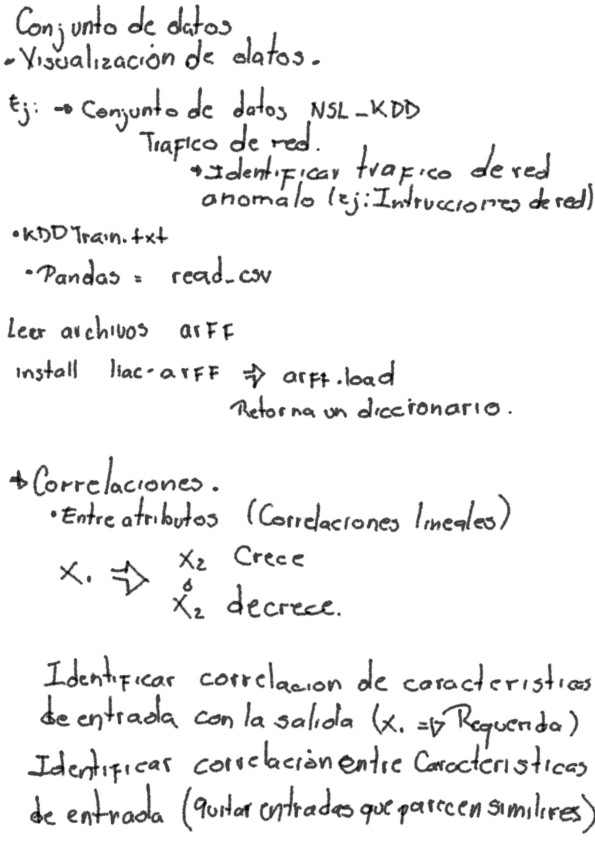 Conjunto de datos
- Visualización de datos.
Ej: → Conjunto de datos NSL_KDD
Trafico de red.
→ Identificar trafico de red
anomalo (Ej: Intrucciones de red)
• KDDTrain.txt
• Pandas = read_csv
Leer archivos arFF
install liac-arFF ⇒ arff.load
Retorna un diccionario.
→ Correlaciones.
• Entre atributos (Correlaciones lineales)
X₁ ⇒ X₂ Crece
ó
X₂ decrece.
Identificar correlacion de caracteristicas
de entrada con la salida (X₁ ⇒ Requerida)
Identificar correlaciòn entre Caracteristicas
de entrada (quitar entradas que parecen similires)